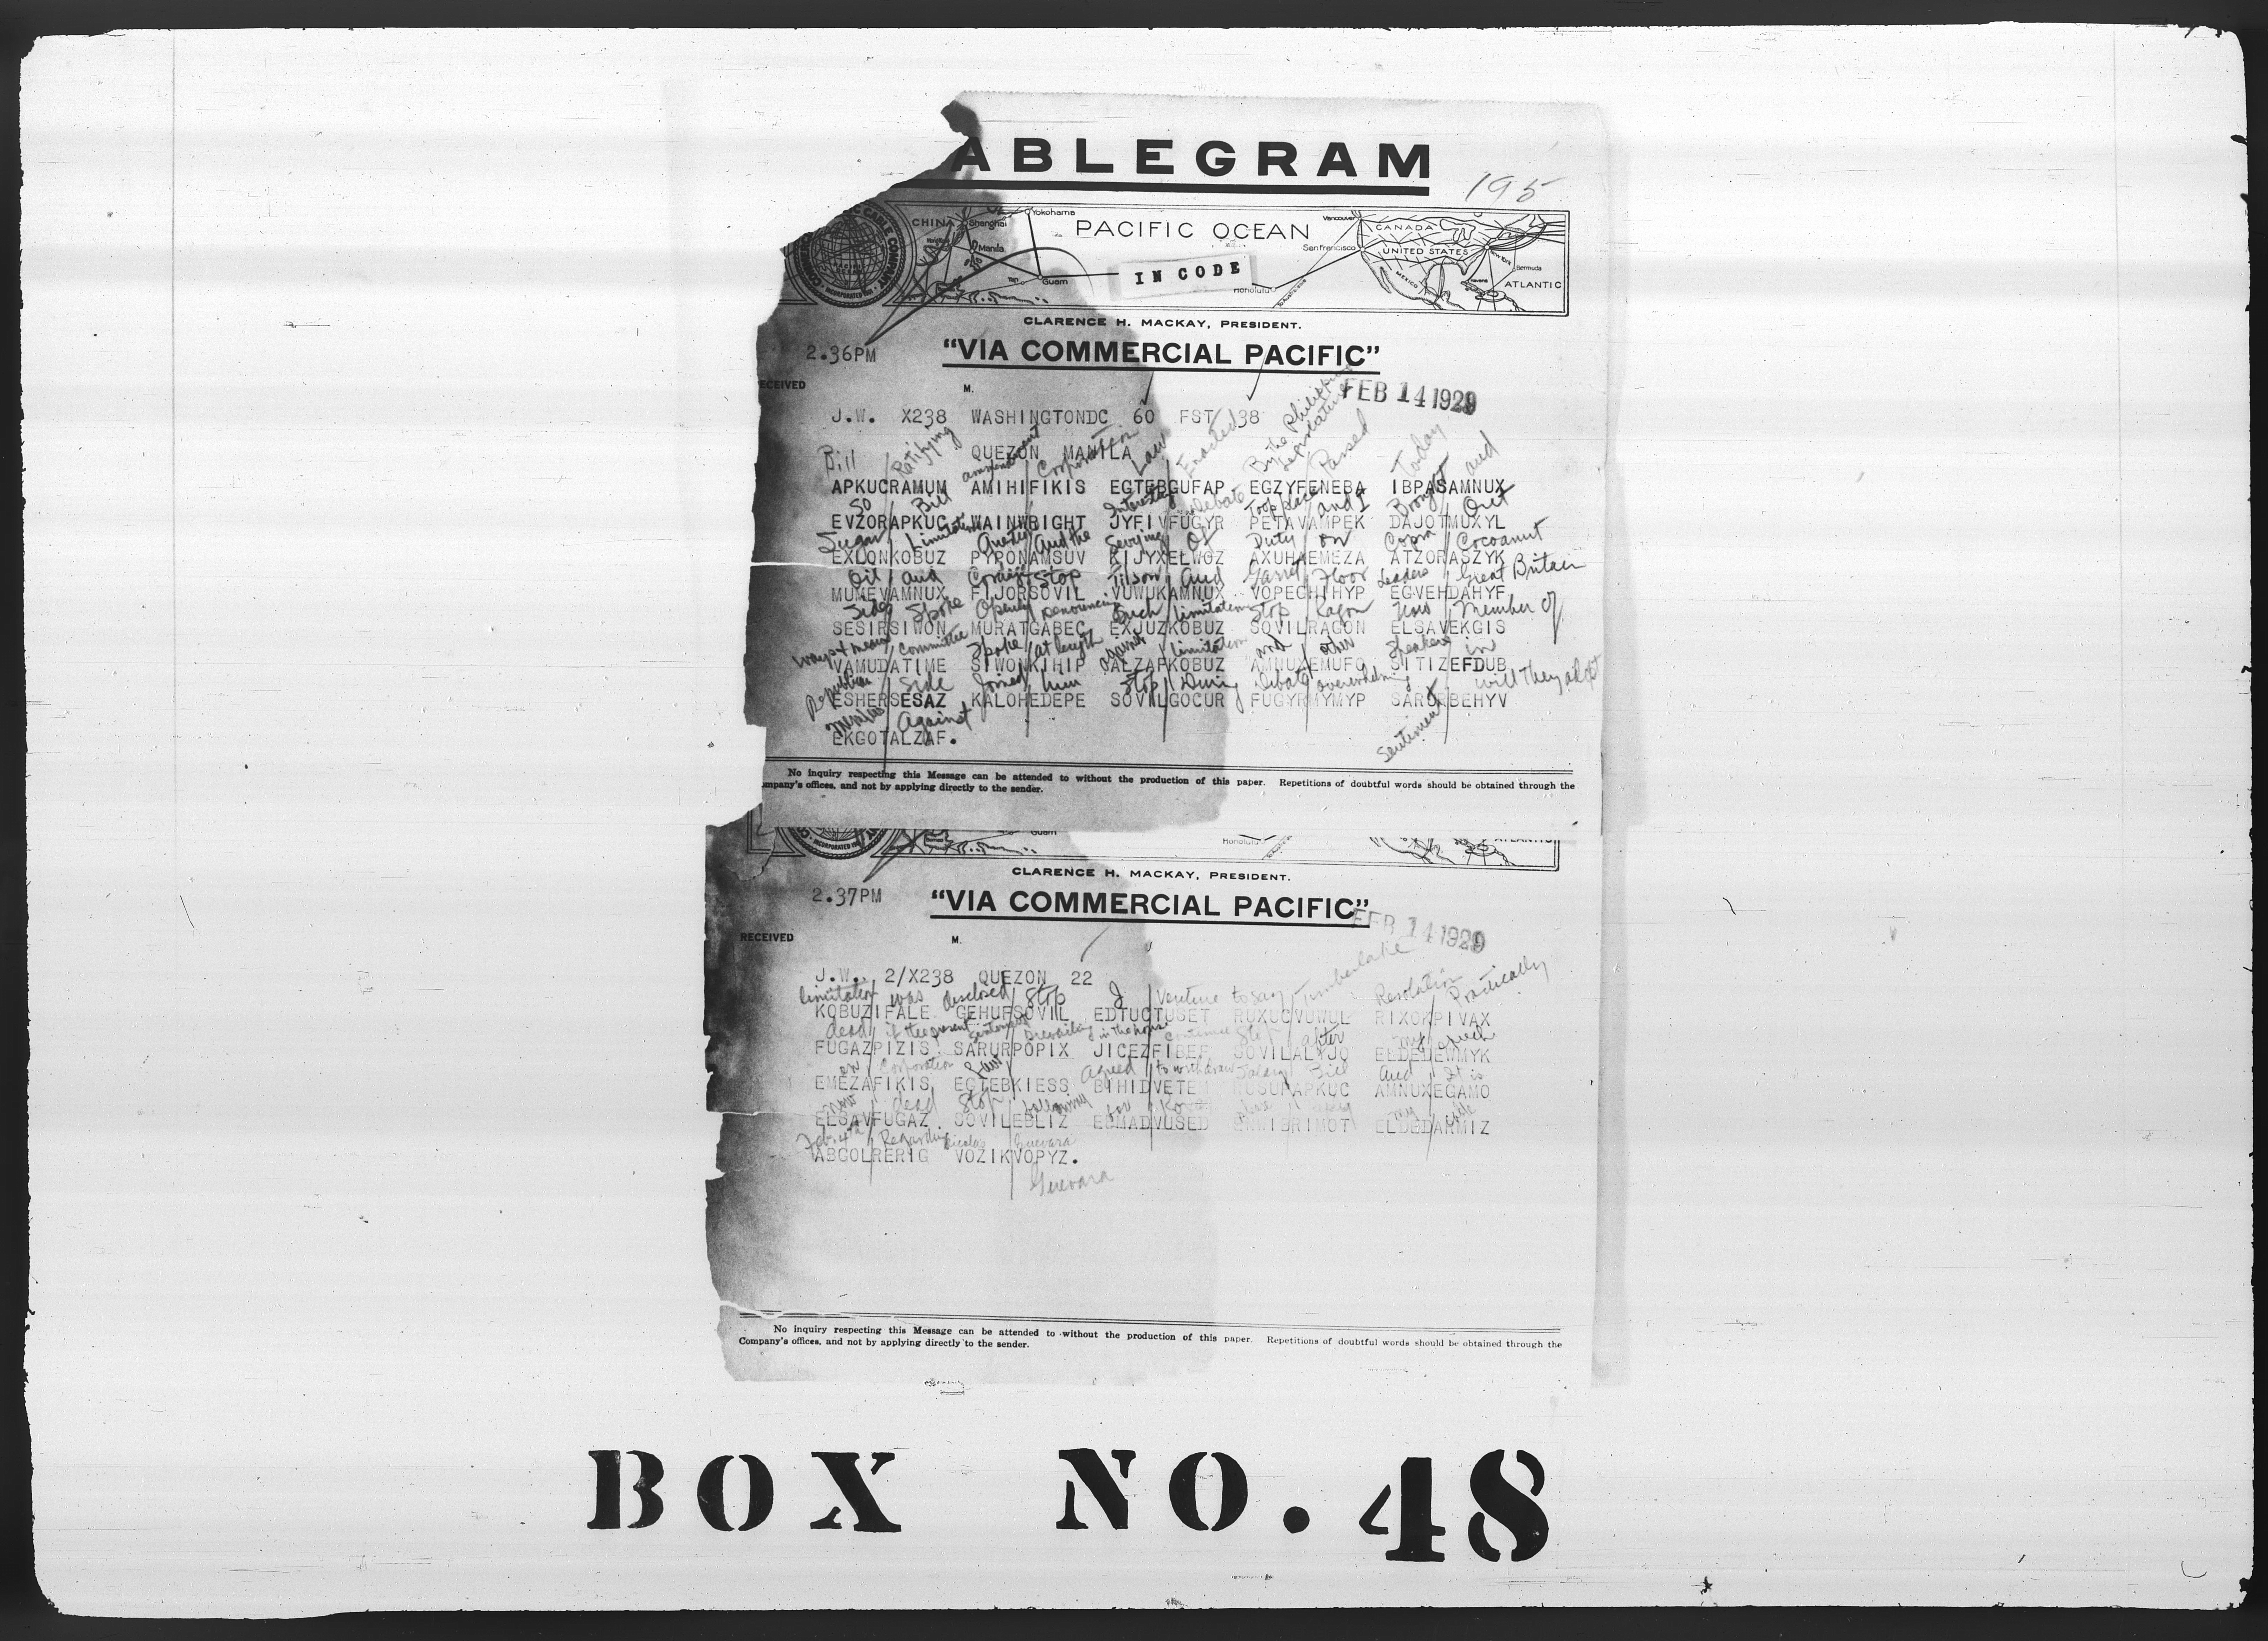 ABLEGRAM
195
CHINA
Shanghai
Yokohama
Manila
Guam
PACIFIC OCEAN
IN CODE
Honolulu
Vancouver
San Francisco
CANADA
UNITED STATES
MEXICO
Bermuda
ATLANTIC
CLARENCE H. MACKAY, PRESIDENT.
2.36PM
"VIA COMMERCIAL PACIFIC"
ECEIVED M.
FEB 14 1929
J.W. X238 WASHINGTONDC 60 FST 38
QUEZON MANILA
Bill Ratifying amendment Corporation Law Enacted By the Philippine Legislature Passed Today and
APKUCRAMUM AMIHIFIKIS EGTEBGUFAP EGZYFENEBA IBPASAMNUX
So Bill Interesting debate Took place and I Brought Out
EVZORAPKUC WAINWRIGHT JYFIVFUGYR PETAVAMPEK DAJOTMUXYL
Sugar Limitation and the Of Duty on Copra Cocoanut
EXLONKOBUZ PYPONAMSUV KIJYXELWGZ AXUHAEMEZA ATZORASZYK
Oil and Stop Tilson and Garret Floor Leaders Great Britain
MUMEVAMNUX FIJORSOVIL VUWUKAMNUX VOPECHTHYP EGVEHDAHYF
Side Spoke Openly denouncing Such limitation Stop Ragon Now Member Of
SESIRSIWON MURATGABEC EXJUZKOBUZ SOVILRAGON ELSAVEKGIS
Ways & means Committee Spoke at length against limitation and other Speakers in
VAMUDATIME SIWONKIHIP CALZAFKOBUZ AMNUXEMUFO SITIZEFDUB
Republican Side Joined him Stop During Debate overwhelming sentiment will they adopt
ESHERSESAZ KALOHEDEPE SOVILGOCUR FUGYRMYMYP SARURBEHYV
Against
EKGOTALZAF.
No inquiry respecting this Message can be attended to without the production of this paper. Repetitions of doubtful words should be obtained through the
ompany's offices, and not by applying directly to the sender.
Guam
Honolulu
CLARENCE H. MACKAY, PRESIDENT.
2.37PM
"VIA COMMERCIAL PACIFIC"
FEB 14 1929
RECEIVED M.
J.W. 2/X238 QUEZON 22
limitation was disclosed Stop I Venture to say Timberlake Resolution Practically
KOBUZIFALE GEHUFSOVIL EDTUCTUSET RUXUCVUWUL RIXOKPIVAX
dead if the present sentiment prevailing in the house continues Stop after my speech
FUGAZPIZIS SARURPOPIX JICEZFIBEF SOVILALYJO ELDEDEWMYK
on Corporation Law agreed to withdraw Bill and It is
EMEZAFIKIS EGTEBKIESS BIHIDVETEM RUSUNAPKUC AMNUXEGAMO
now dead Stop following for my cable
ELSAVFUGAZ SOVILEBLIZ EBMADVUSED ERWIBRIMOT ELDEDARMIZ
Feb. 4th Regarding Nicolas Guevara
ABCOLRERIG VOZIKVOPYZ.
Guevara
No inquiry respecting this Message can be attended to without the production of this paper. Repetitions of doubtful words should be obtained through the
Company's offices, and not by applying directly to the sender.
BOX NO. 48